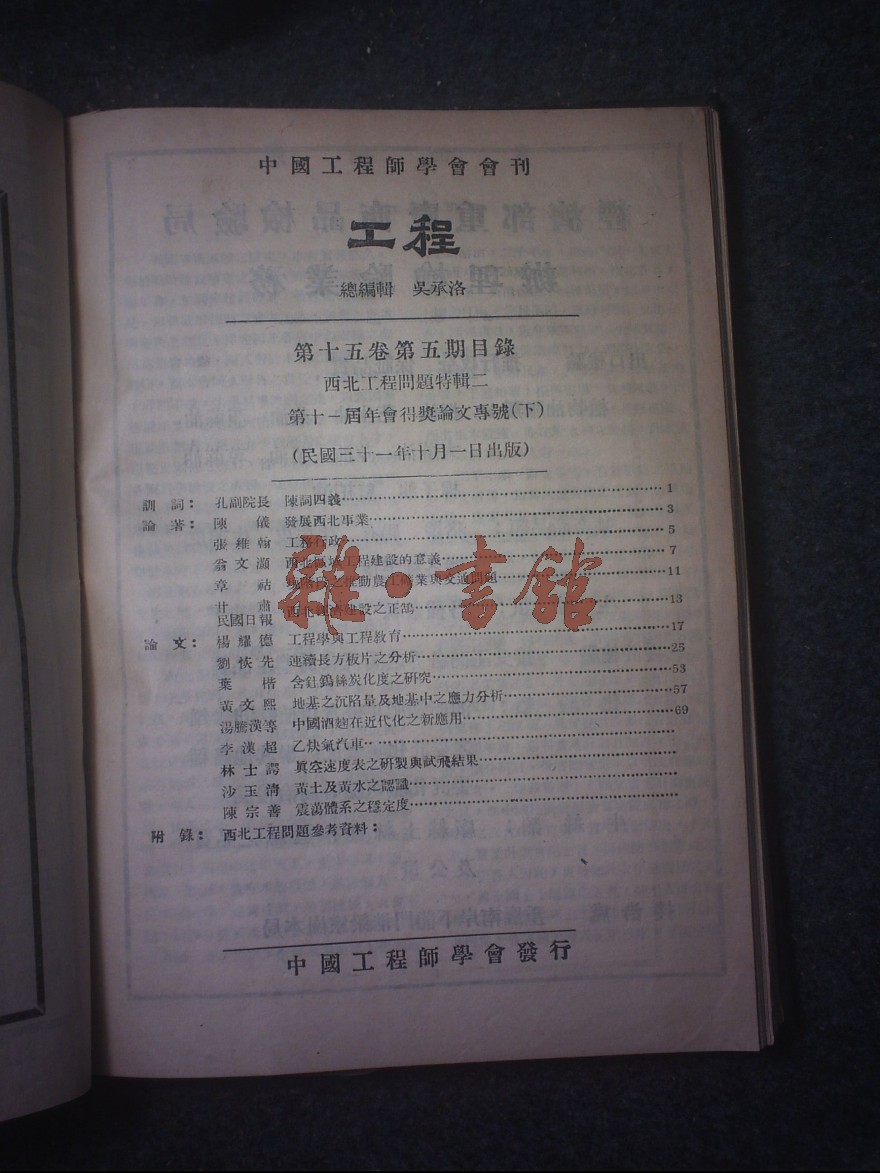 中國工程師學會會刊
工程
總編輯 吳承洛
第十五卷第五期目錄
西北工程問題特輯二
第十一屆年會得獎論文專號(下)
(民國三十一年十月一日出版)
訓詞: 孔副院長 陳詞四義 1
論著: 陳儀 發展西北事業 3
張維翰 工務行政 5
翁文灝 西北區域工程建設的意義 7
章祜 推動農工礦業與交通問題 11
甘肅民國日報 西北經濟建設之正鵠 13
論文: 楊耀德 工程學與工程教育 17
劉恢先 連續長方板片之分析 25
葉楷 含釷鎢絲炭化度之研究 53
黃文熙 地基之沉陷量及地基中之應力分析 57
湯騰漢等 中國酒麴在近代化之新應用 69
李漢超 乙炔氣汽車
林士諤 眞空速度表之研製與試飛結果
沙玉清 黃土及黃水之認識
陳宗善 震蕩體系之穩定度
附錄: 西北工程問題參考資料:
中國工程師學會發行
雜·書館